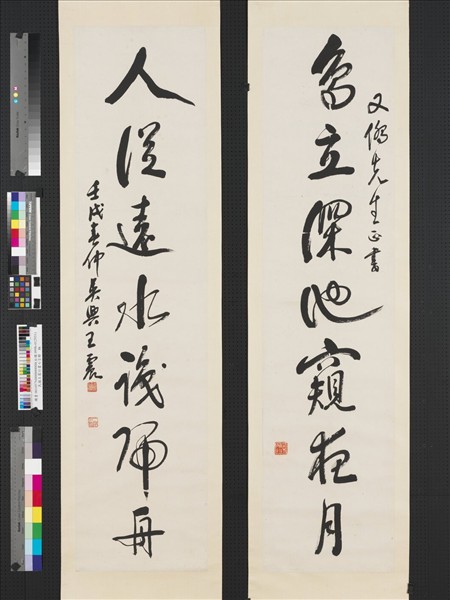 又僑先生正書
鳥立深池窺夜月
人從遠水識歸舟
壬戌春仲吳興王震